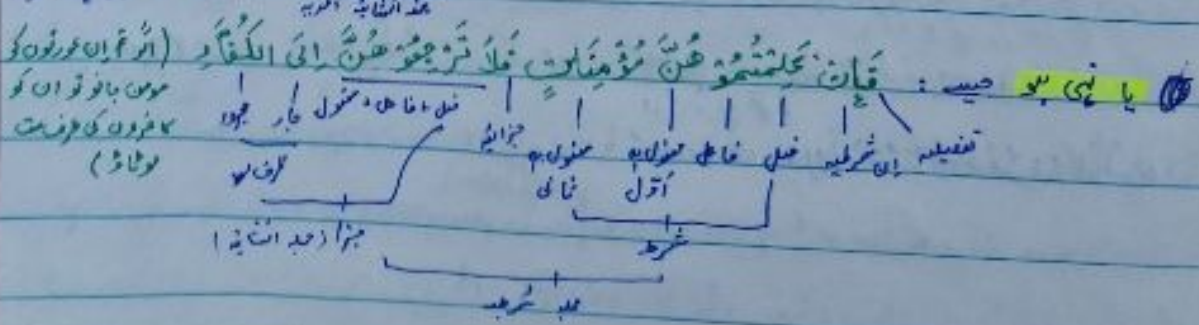 جملہ انشائیہ
یا نہی ہو جیسے : فَإِنْ عَلِمْتُمُوْ هُنَّ مُؤْمِنَاتٍ فَلَا تَرْجِعُوْ هُنَّ اِلَی الْکُفَّارِ (اگر تم ان عورتوں کو
مومن جانو تو ان کو
کافروں کی طرف مت
لوٹاؤ)
تفصیلیہ اِن شرطیہ فعل فاعل مفعول بہ مفعول بہ جزائیہ فعل + فاعل + مفعول جار مجرور
اَوّل ثانی
شرط
جزا (جملہ انشائیہ)
جملہ شرطیہ